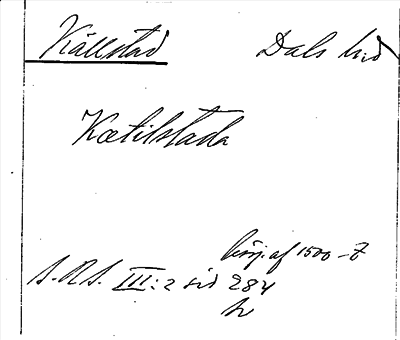 Källstad Dals hd
Kætilstada
börj. af 1500-t
S.R.S. III:2 sid 284